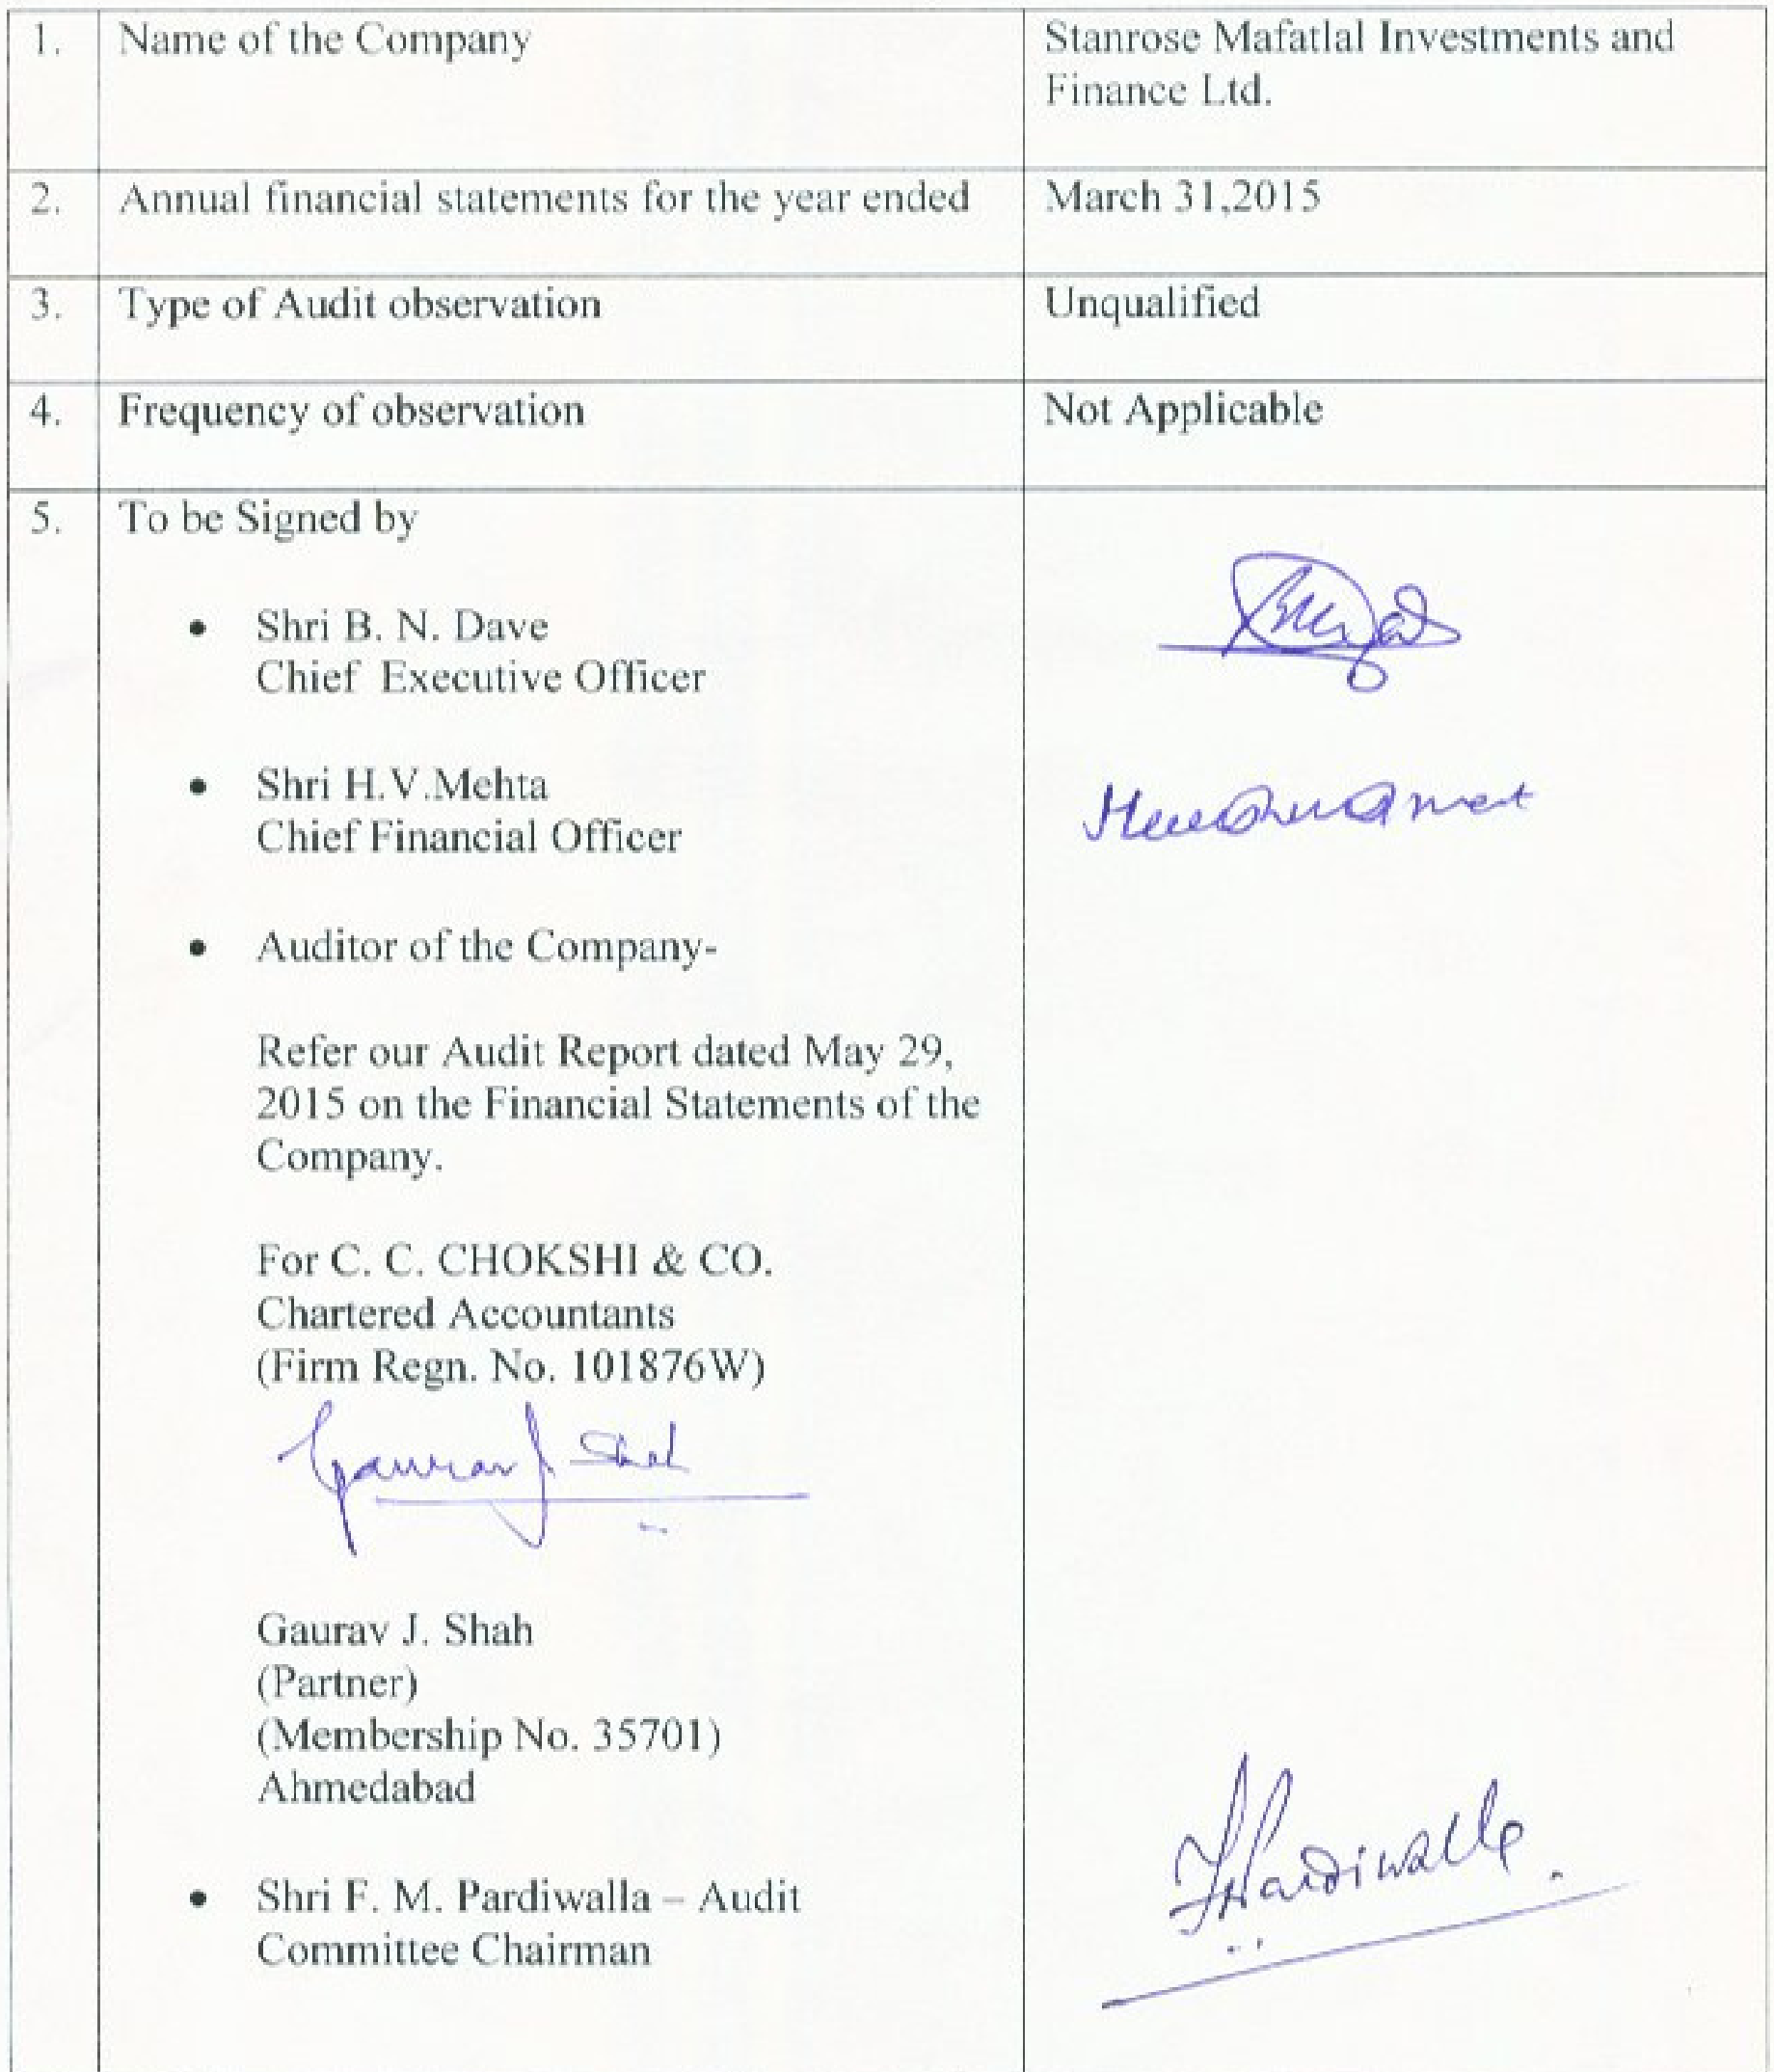 1. Name of the Company Stanrose Mafatlal Investments and
Finance Ltd.
2. Annual financial statements for the year ended March 31,2015
3. Type of Audit observation Unqualified
4. Frequency of observation Not Applicable
5. To be Signed by
• Shri B. N. Dave
Chief Executive Officer
• Shri H.V.Mehta
Chief Financial Officer
• Auditor of the Company-
Refer our Audit Report dated May 29,
2015 on the Financial Statements of the
Company.
For C. C. CHOKSHI & CO.
Chartered Accountants
(Firm Regn. No. 101876W)
Gaurav J. Shah
Gaurav J. Shah
(Partner)
(Membership No. 35701)
Ahmedabad
• Shri F. M. Pardiwalla – Audit
Committee Chairman
FMPardiwalla